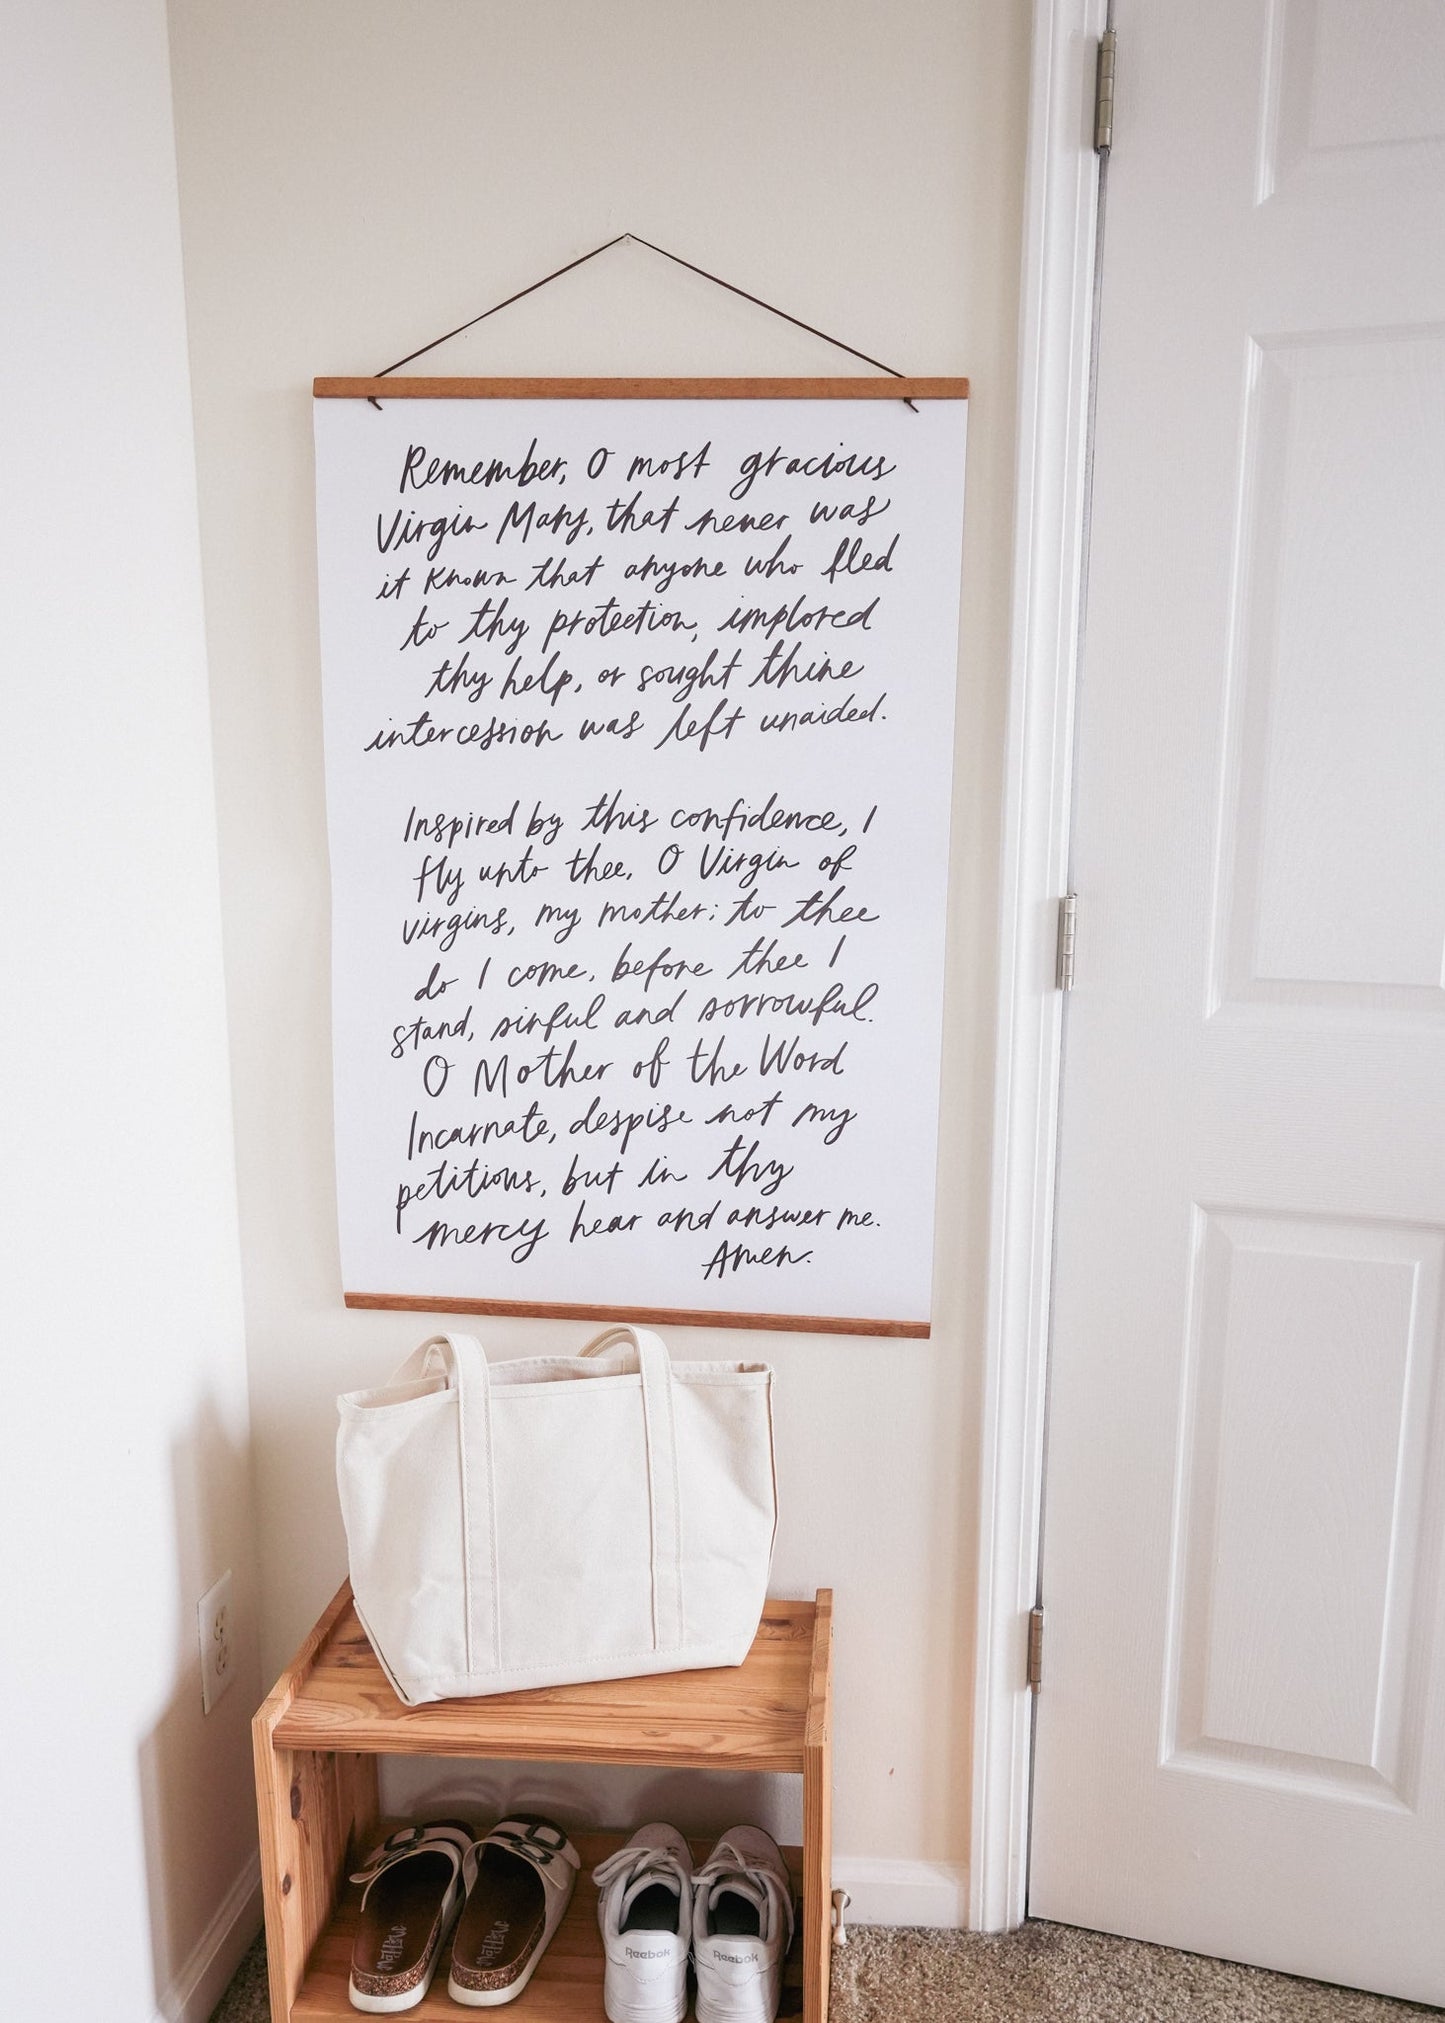 Remember, O most gracious
Virgin Mary, that never was
it known that anyone who fled
to thy protection, implored
thy help, or sought thine
intercession was left unaided.
Inspired by this confidence, I
fly unto thee, O Virgin of
virgins, my mother; to thee
do I come, before thee I
stand, sinful and sorrowful.
O Mother of the Word
Incarnate, despise not my
petitions, but in thy
mercy hear and answer me.
Amen.
Reebok
Reebok